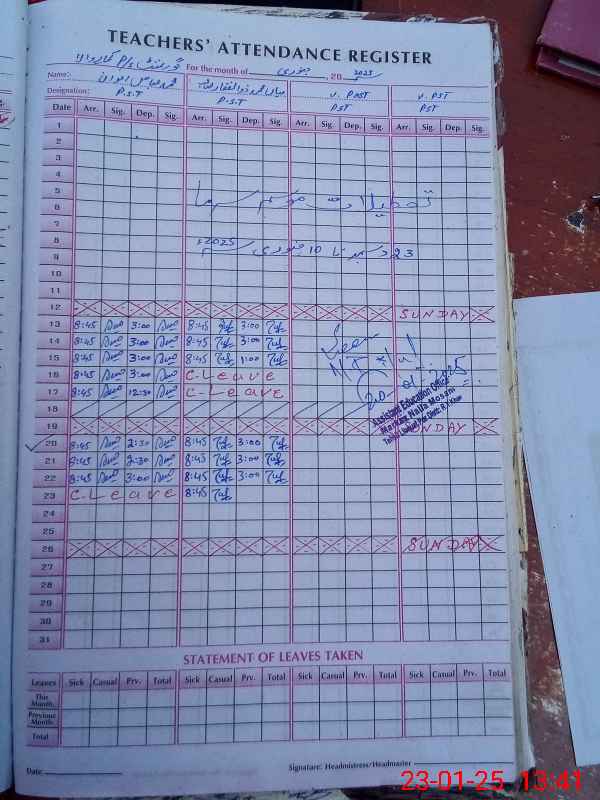 TEACHERS' ATTENDANCE REGISTER
For the month of جنوری, 20 2025
Name:
Designation: P.S.T P.S.T V. PST PST V. PST PST
Date Arr. Sig. Dep. Sig. Arr. Sig. Dep. Sig. Arr. Sig. Dep. Sig. Arr. Sig. Dep. Sig.
1
2
3
4
5 تعطیلات موسم سرما
6
7
8 23 دسمبر تا 10 جنوری 2025
9
10
11
12 SUNDAY
13 8:45 3:00 8:45 3:00
14 8:45 3:00 8:45 3:00
15 8:45 3:00 8:45 11:00
Seen
16 8:45 3:00 C-Leave
17 8:45 12:30 C-Leave
Assistant Education Officer
18
19 SUNDAY
20 8:45 2:30 8:45 3:00
21 8:45 2:30 8:45 3:00
22 8:45 3:00 8:45 3:00
23 C-Leave 8:45
24
25
26 SUNDAY
27
28
29
30
31
STATEMENT OF LEAVES TAKEN
Leaves Sick Casual Prv. Total Sick Casual Prv. Total Sick Casual Prv. Total Sick Casual Prv. Total
This Month.
Previous Month.
Total
Date: Signature: Headmistress/Headmaster
23-01-25 13:41